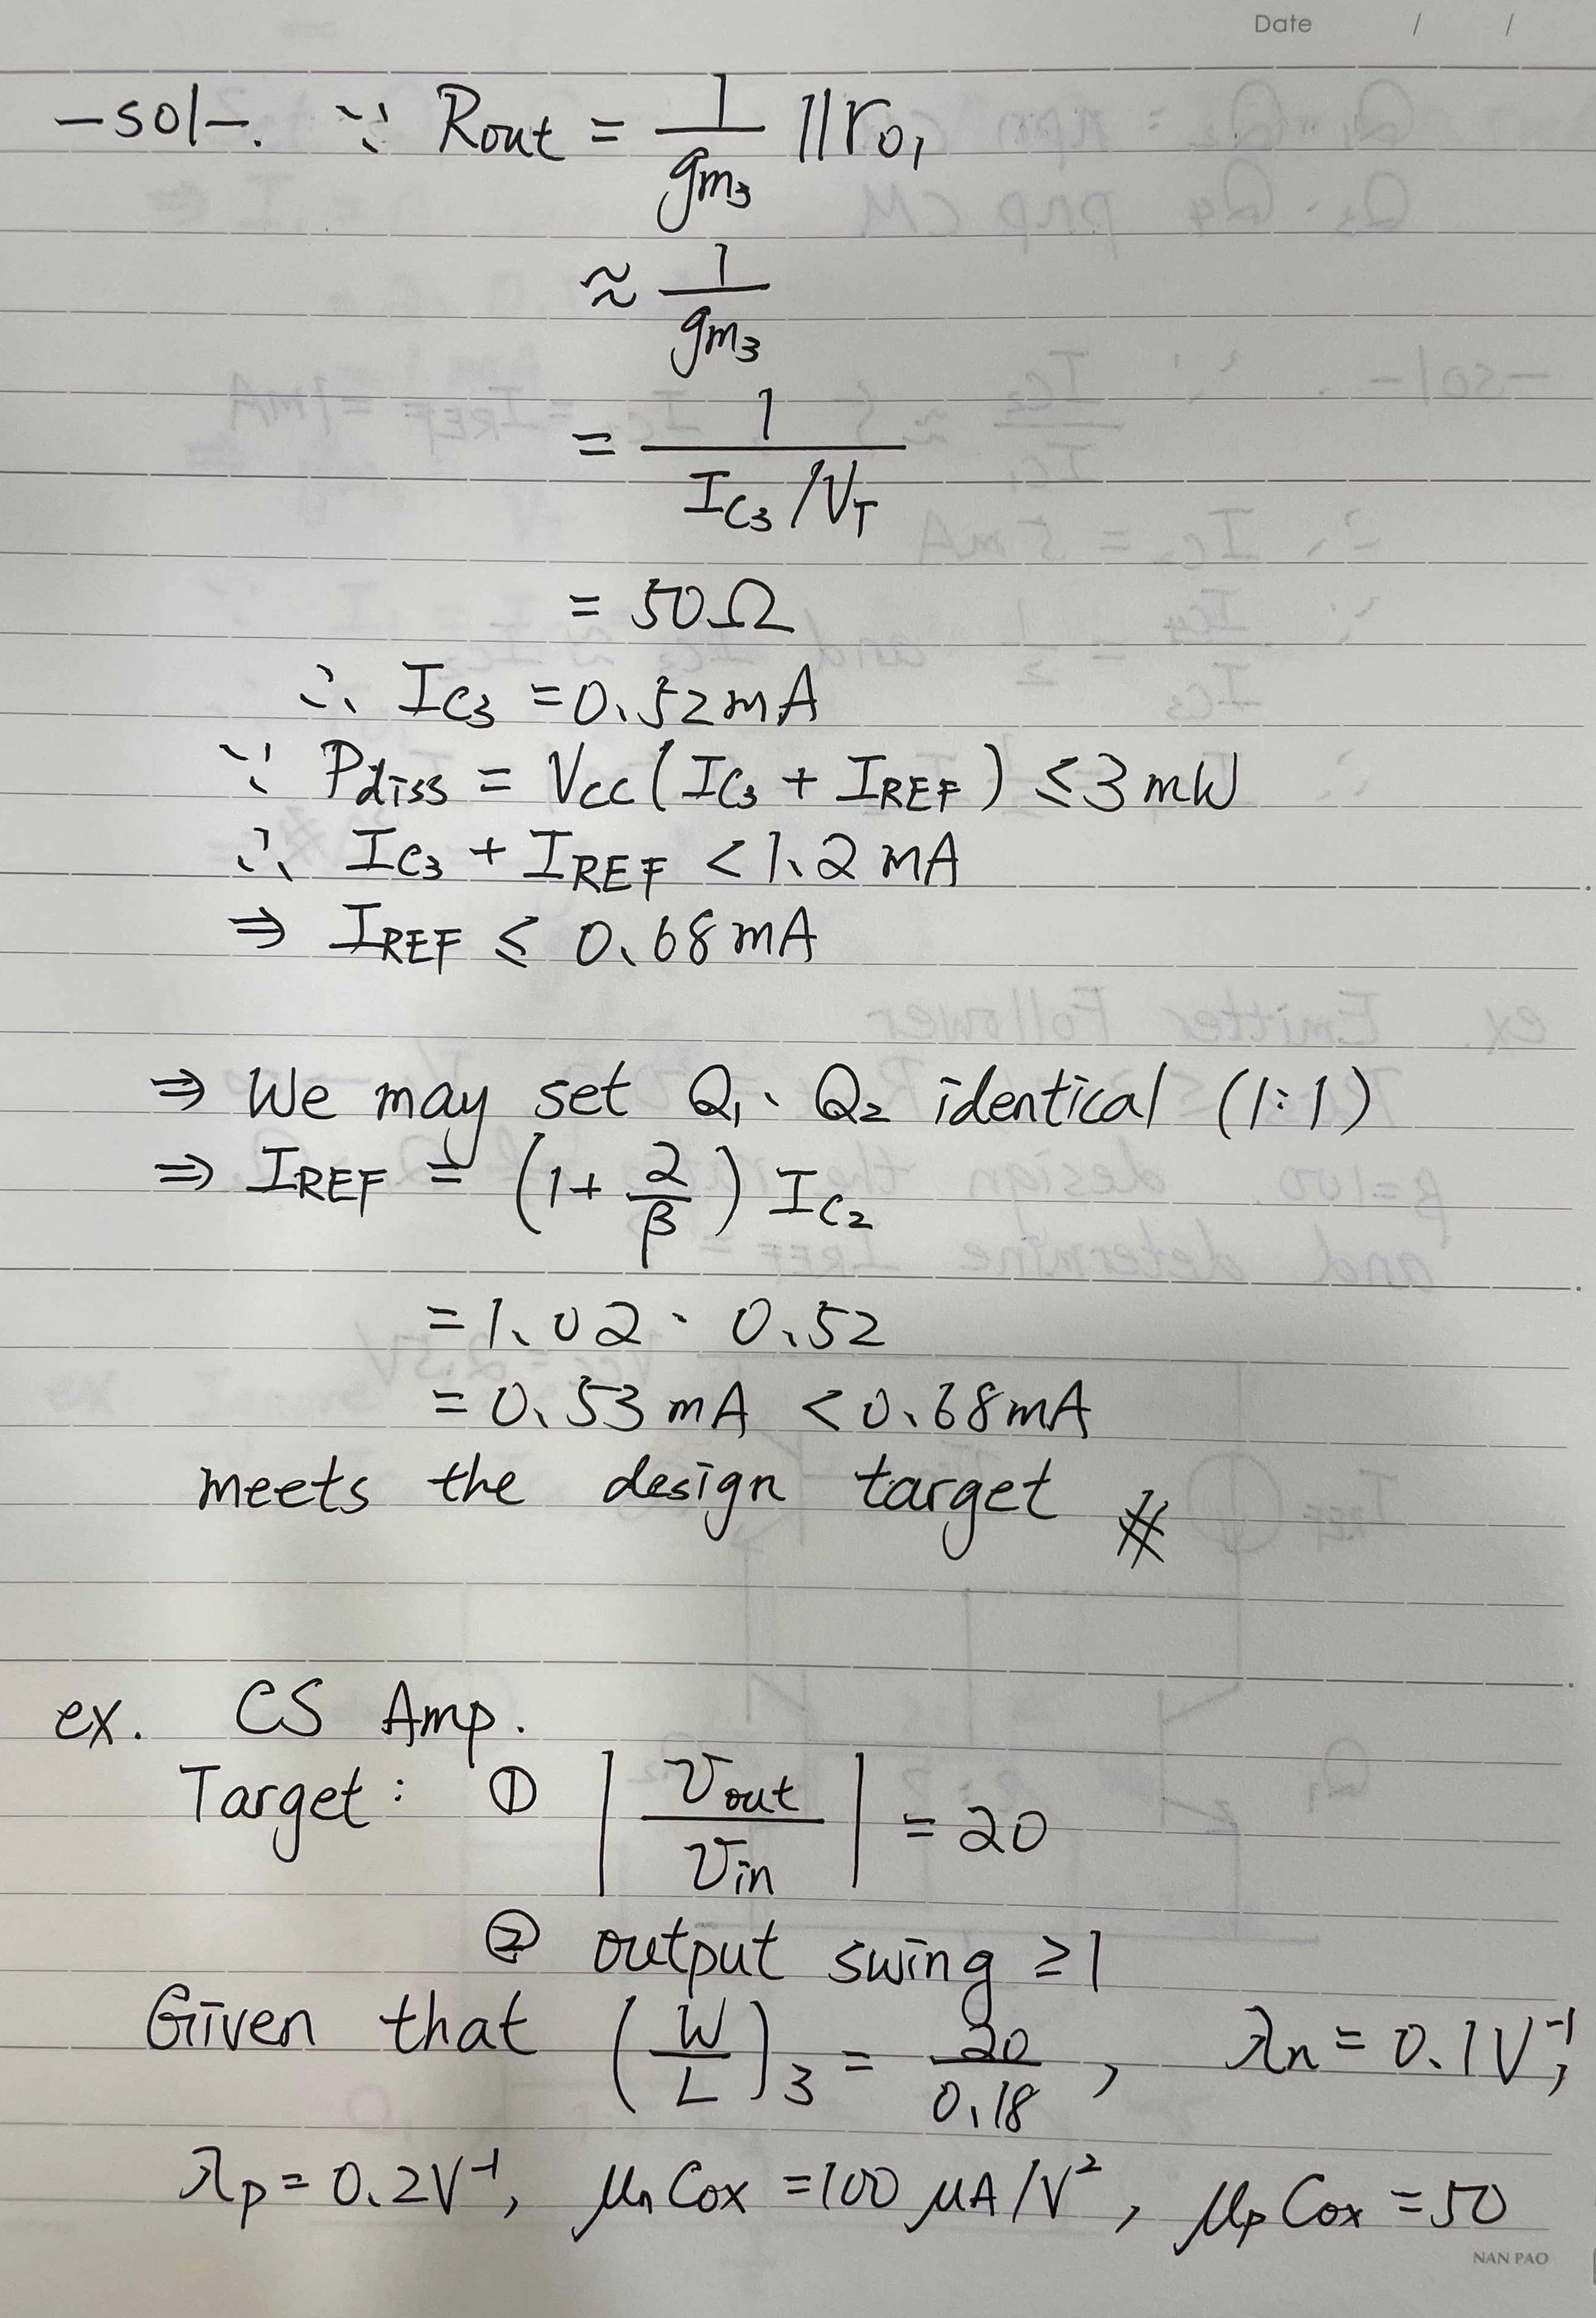 Date / /
-sol-. ∵ Rout = 1/gm3 || ro1
≈ 1/gm3
= 1/(IC3/VT)
= 50Ω
∴ IC3 = 0.52mA
∵ Pdiss = VCC(IC3 + IREF) ≤ 3mW
∴ IC3 + IREF < 1.2mA
⇒ IREF ≤ 0.68mA
⇒ We may set Q1、Q2 identical (1:1)
⇒ IREF = (1+ 2/β) IC2
= 1.02 · 0.52
= 0.53mA < 0.68mA
meets the design target #
ex. CS Amp.
Target: ① |vout/vin| = 20
② output swing ≥1
Given that (W/L)3 = 20/0.18, λn = 0.1V⁻¹,
λp = 0.2V⁻¹, μnCox = 100 μA/V², μpCox = 50
NAN PAO